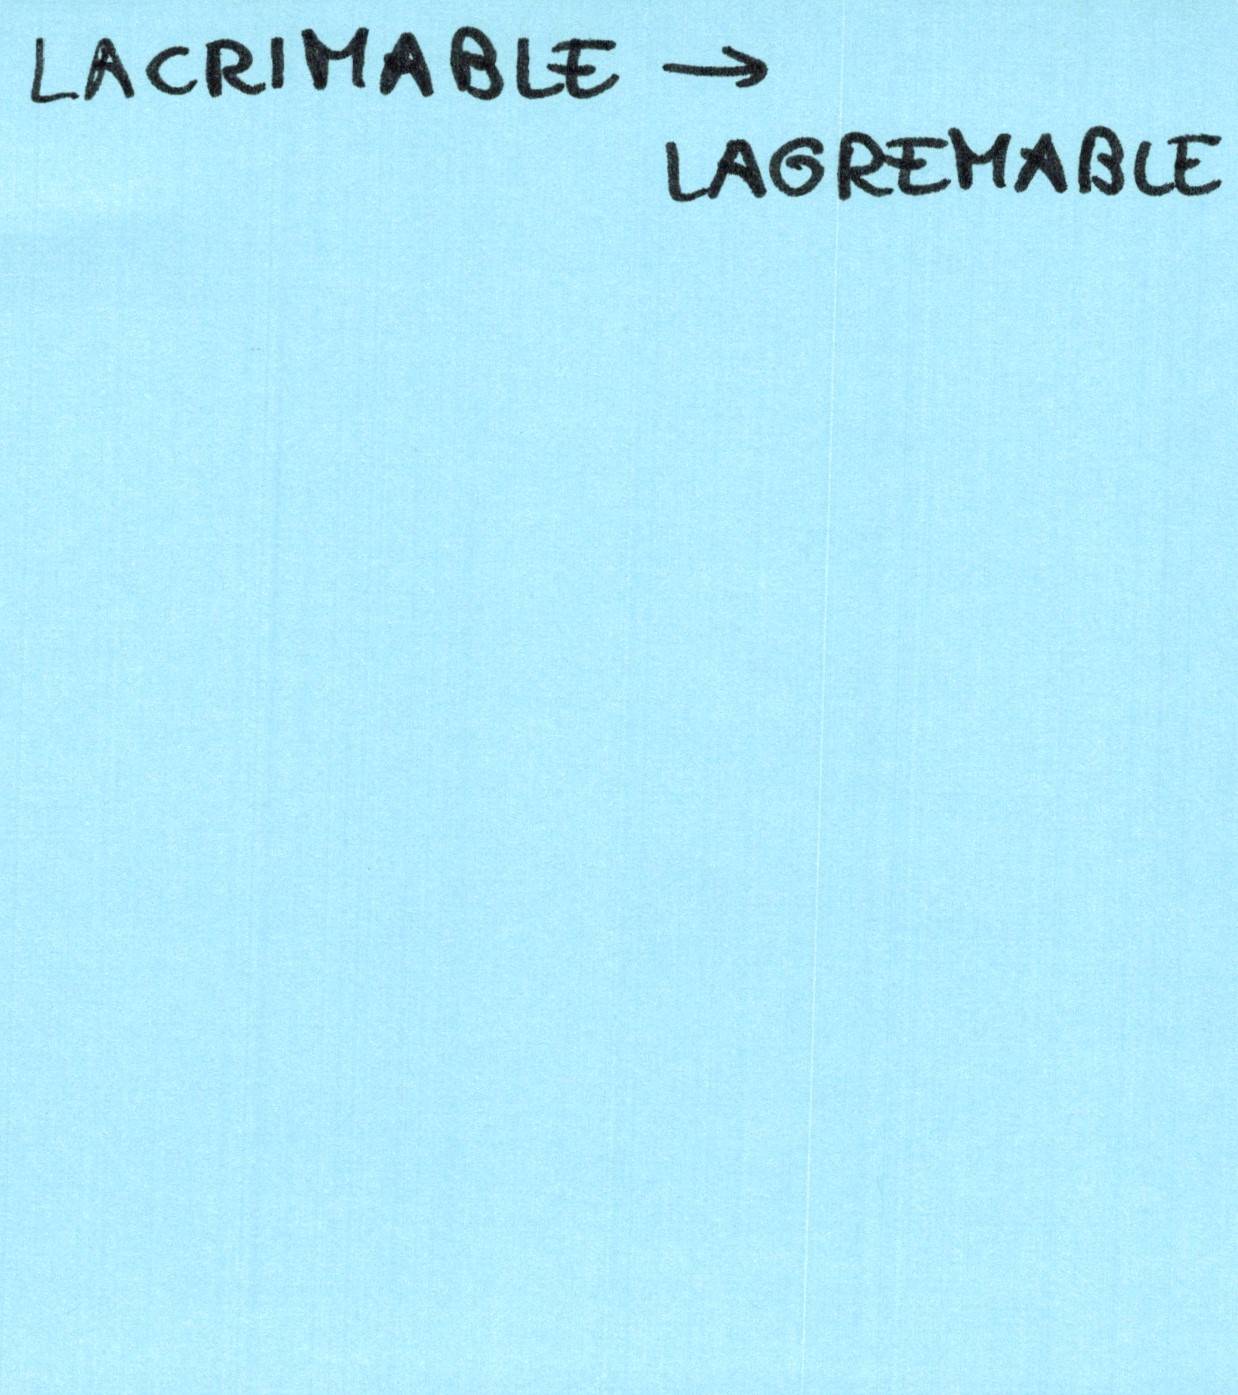 LACRIMABLE →
LAGREMABLE